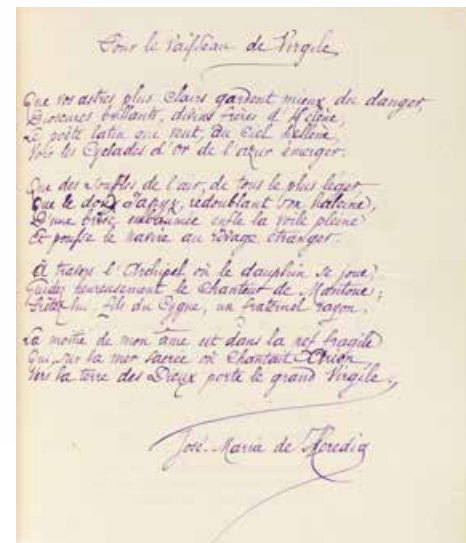 Pour le Vaisseau de Virgile
Que vos astres plus clairs gardent mieux du danger,
Dioscures brillants, divins frères d'Hélène,
Le poète latin qui veut, au Ciel hellène,
Voir les Cyclades d'or de l'azur émerger.
Que des Souffles de l'air, de tous le plus léger,
Que le doux Iapyx, redoublant son haleine,
D'une brise embaumée enfle la voile pleine
Et pousse le navire au rivage étranger.
À travers l'Archipel où le dauphin se joue,
Guidez heureusement le Chanteur de Mantoue ;
Prêtez-lui, fils du Cygne, un fraternel rayon.
La moitié de mon âme est dans la nef fragile
Qui, sur la mer sacrée où Chantait Arion,
Vers la terre des Dieux porte le grand Virgile.
José-Maria de Heredia